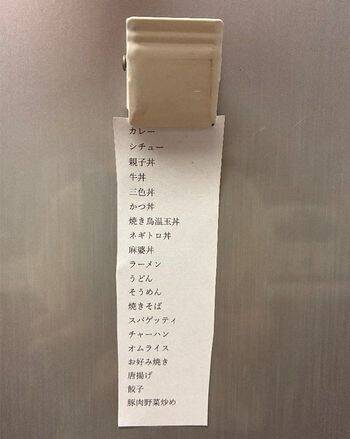 カレー
シチュー
親子丼
牛丼
三色丼
かつ丼
焼き鳥温玉丼
ネギトロ丼
麻婆丼
ラーメン
うどん
そうめん
焼きそば
スパゲッティ
チャーハン
オムライス
お好み焼き
唐揚げ
餃子
豚肉野菜炒め